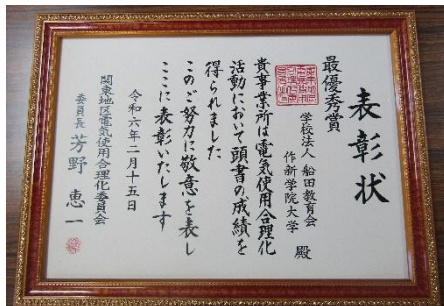 表彰状
最優秀賞
学校法人 船田教育会
作新学院大学 殿
貴事業所は電気使用合理化
活動において頭書の成績を
得られました
このご努力に敬意を表し
ここに表彰いたします
令和六年二月十五日
関東地区電気使用合理化委員会
委員長 芳野恵一